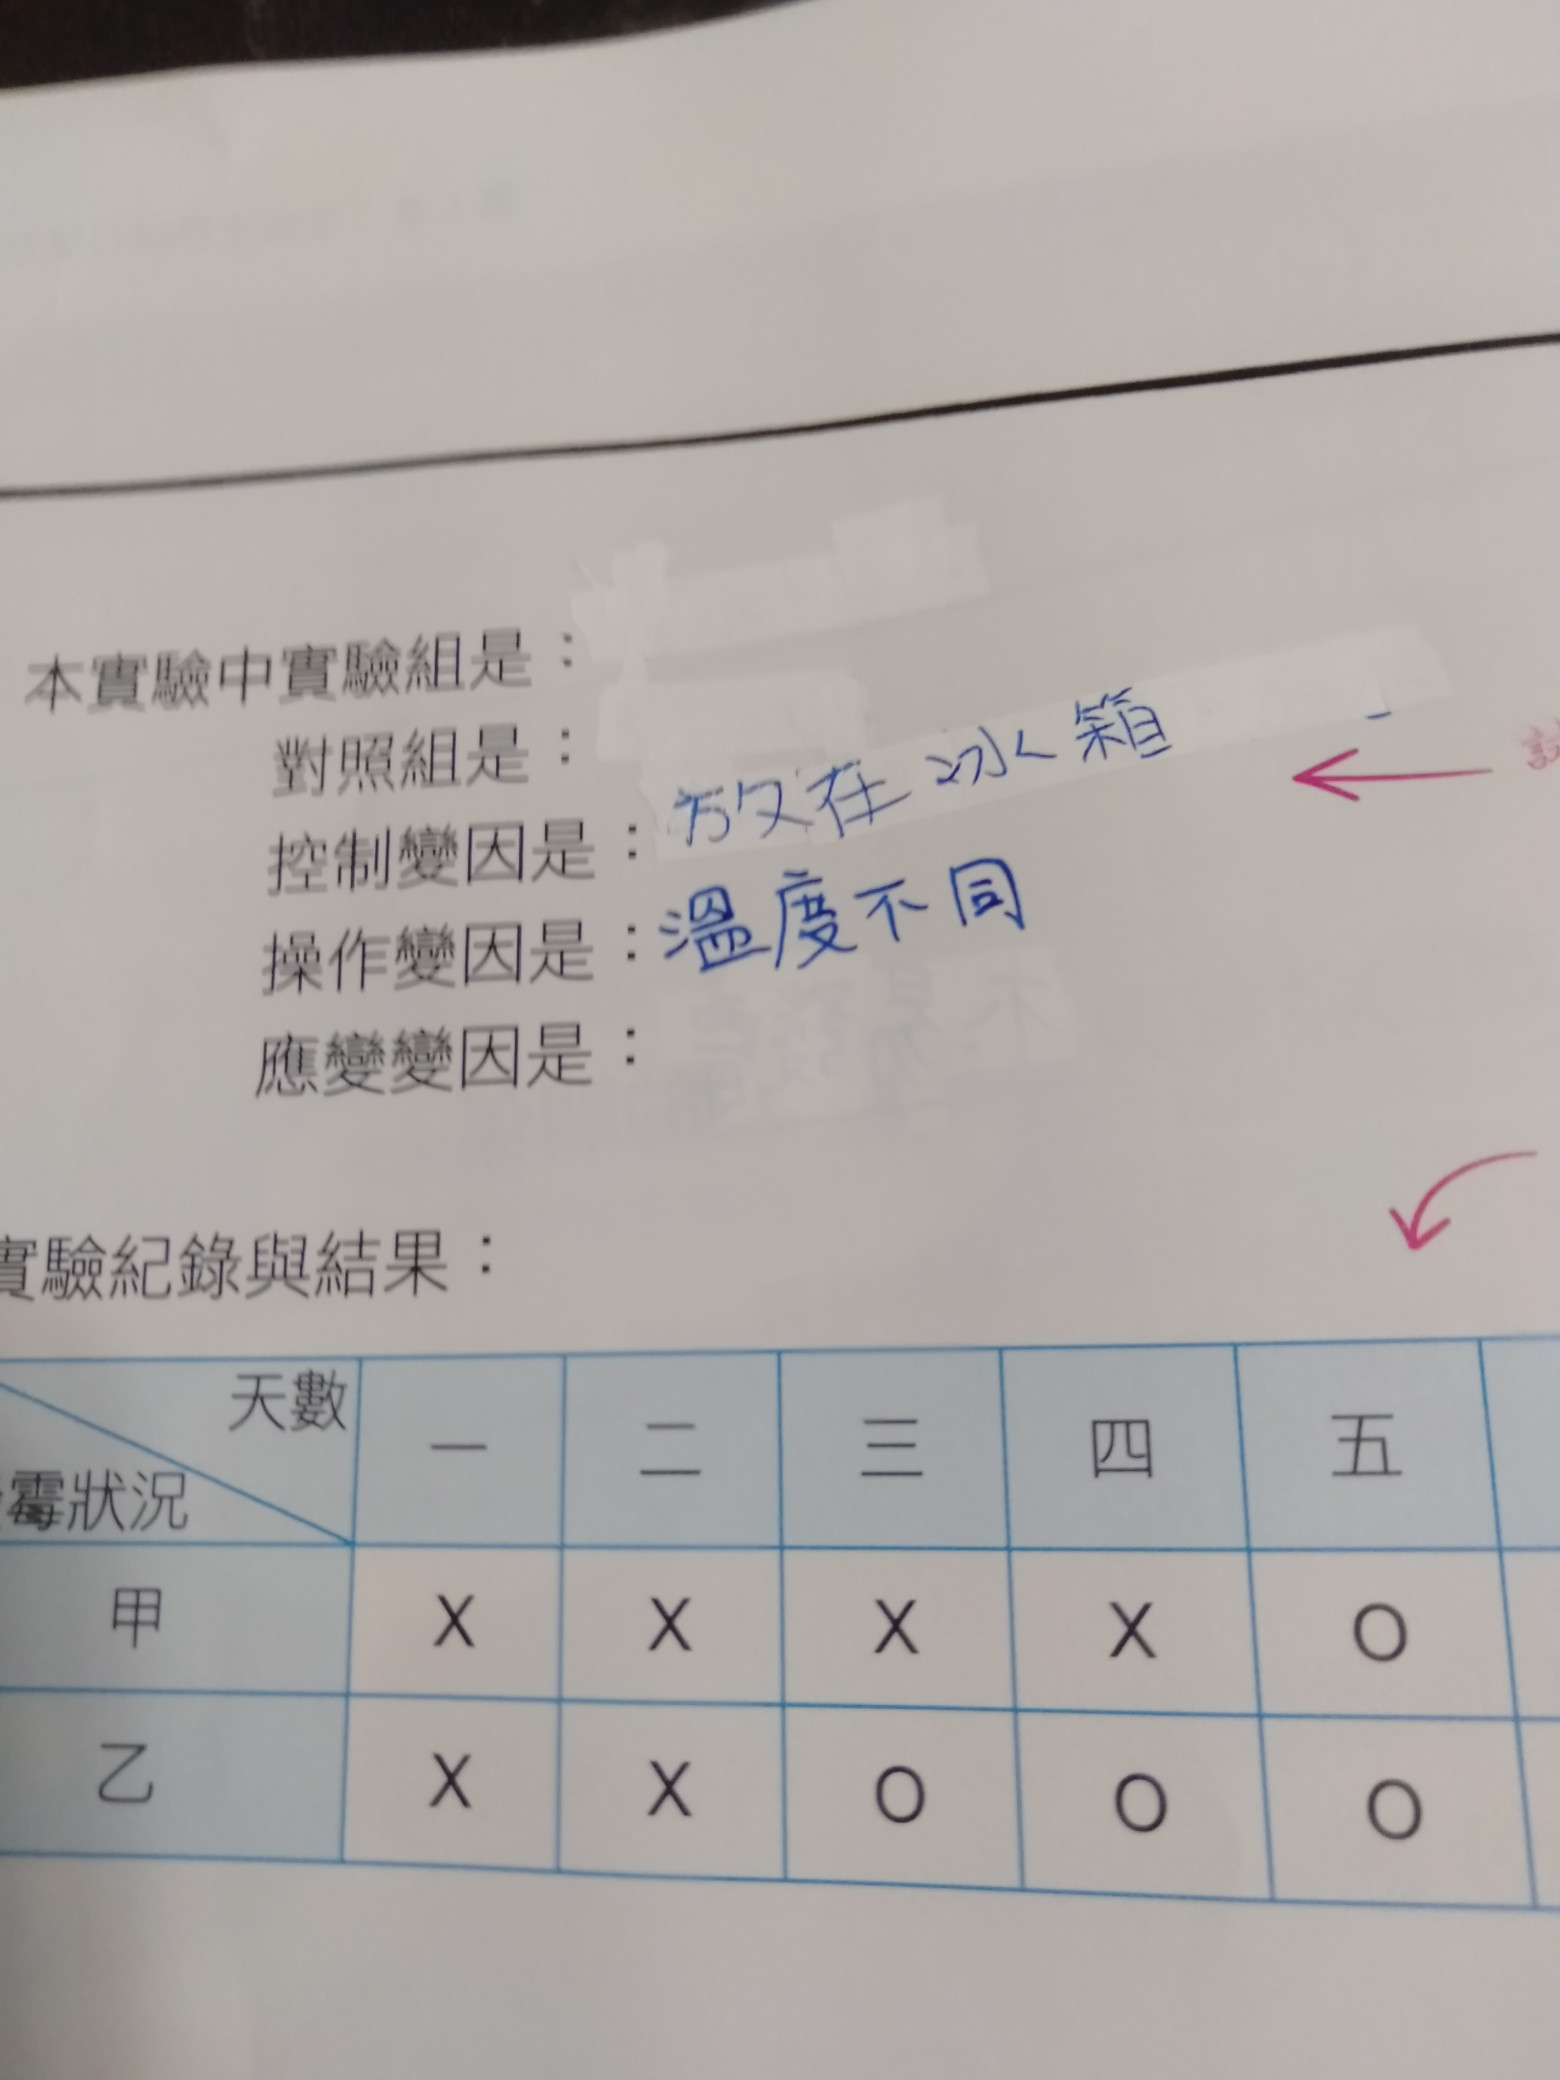 本實驗中實驗組是：
對照組是：
控制變因是：放在冰箱
操作變因是：溫度不同
應變變因是：
實驗紀錄與結果：
天數 一 二 三 四 五
霉狀況
甲 X X X X O
乙 X X O O O